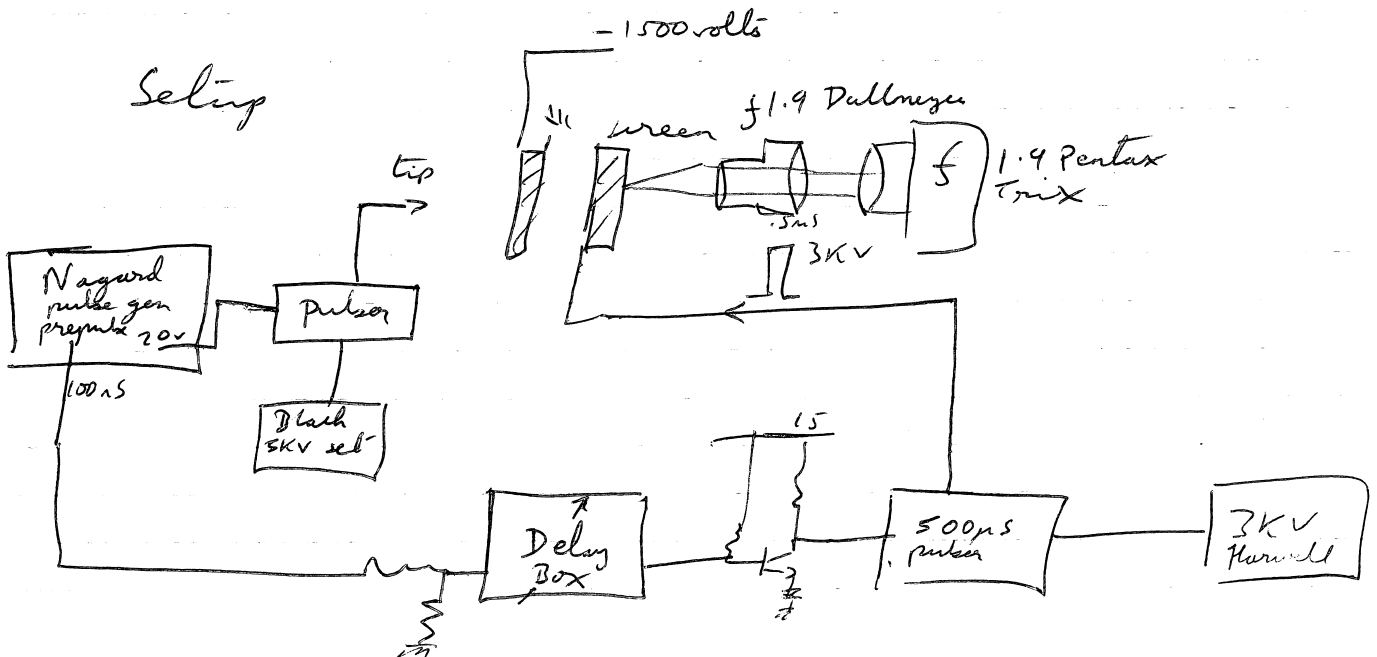 - 1500 volts
Setup
f1.9 Dallmeyer
screen
1.9 Pentax
f
Trix
tip
.5ms
3KV
Nagard
pulse gen
prepulse 20v
pulser
100nS
Black
5KV set
15
Delay
Box
500μS
pulser
3KV
Harwell